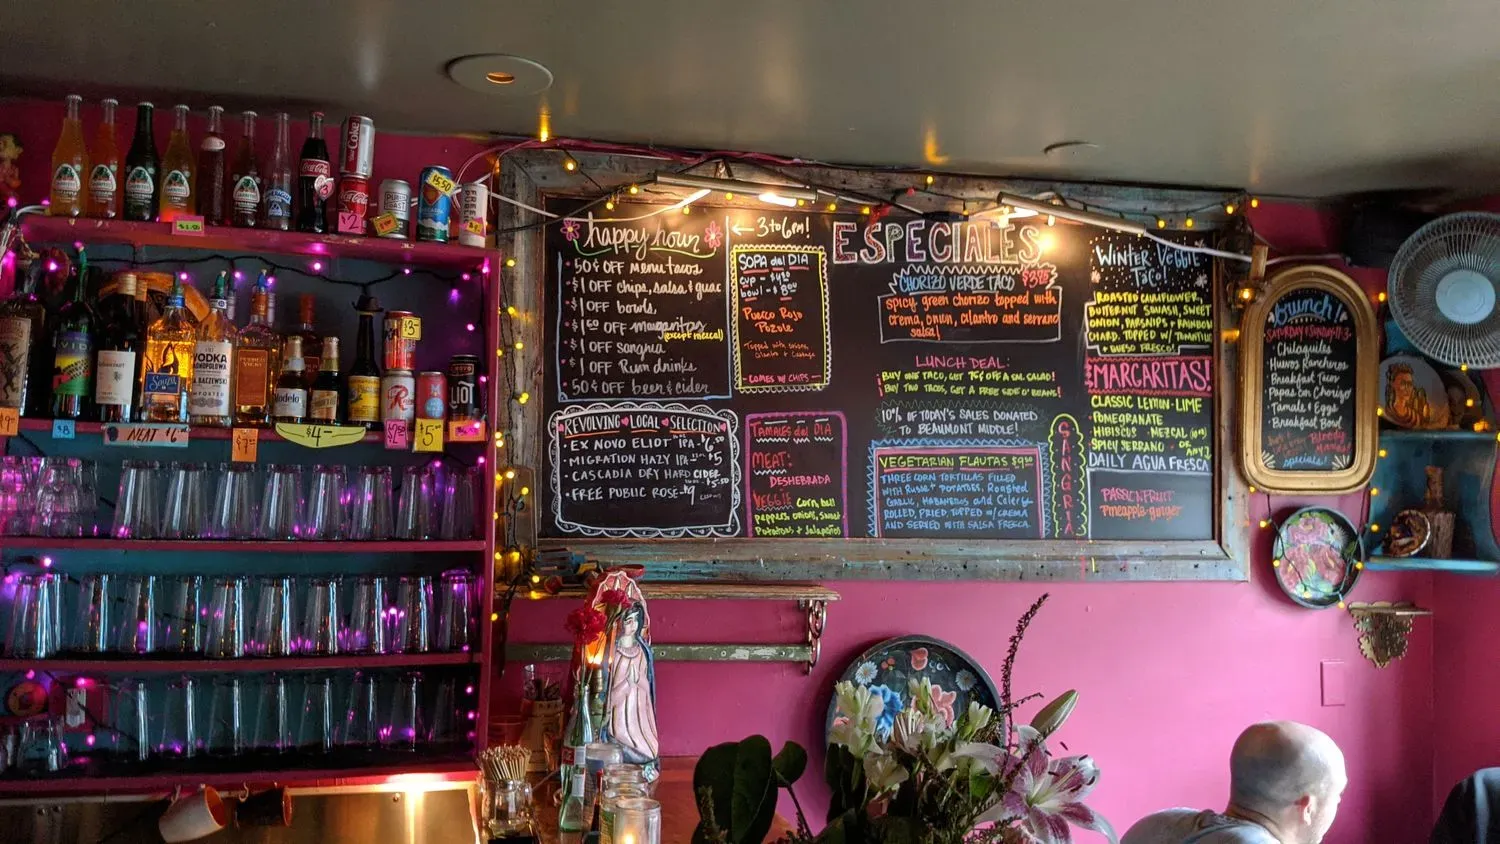 happy hour
← 3 to 6pm!
• 50¢ OFF menu tacos
• $1 OFF chips, salsa & guac
• $1 OFF bowls
• $1.50 OFF margaritas
(except mezcal)
• $1 OFF sangria
• $1 OFF Rum drinks
• 50¢ OFF beer & cider
REVOLVING LOCAL SELECTION
• EX NOVO ELIOT IPA - $6.50
• MIGRATION HAZY IPA $5
• CASCADIA DRY HARD CIDER $5.50
• FREE PUBLIC ROSÉ - $9
SOPA del DIA
CUP -
bowl -
Puerco Rojo
Pozole
Topped with onion,
Cilantro + Cabbage
- COMES W/ CHIPS -
TAMALES del DIA
MEAT:
DESHEBRADA
VEGGIE Corn, bell
peppers, onions, Sweet
Potatoes, + Jalapeños
ESPECIALES
CHORIZO VERDE TACO $3.75
spicy green chorizo topped with
crema, onion, cilantro and serrano
salsa!
LUNCH DEAL:
BUY ONE TACO, GET 75¢ OFF A SM. SALAD!
BUY TWO TACOS, GET A FREE SIDE O' BEANS!
10% OF TODAY'S SALES DONATED
TO BEAUMONT MIDDLE!
VEGETARIAN FLAUTAS
THREE CORN TORTILLAS FILLED
WITH POTATOES, Roasted
GARLIC, HABANEROS and Celery
ROLLED, FRIED, TOPPED W/ CREMA
AND SERVED WITH SALSA FRESCA.
SANGRIA
WINTER VEGGIE
TACO!
ROASTED CAULIFLOWER,
BUTTERNUT SQUASH, SWEET
ONION, PARSNIPS + RAINBOW
CHARD. TOPPED W/ TOMATILLO
+ QUESO FRESCO!
MARGARITAS!
CLASSIC LEMON-LIME
POMEGRANATE
HIBISCUS MEZCAL
SPICY SERRANO
DAILY AGUA FRESCA
PASSIONFRUIT
Pineapple-ginger
brunch!
SATURDAY & SUNDAY 11-3
Chilaquiles
Huevos Rancheros
Breakfast Taco
Papas con Chorizo
Tamale & Eggs
Breakfast Bowl
Bloody
specials!
Coke
Coca-Cola
$2
$5.50
VODKA
MONOPOLOWA
J.A. BACZEWSKI
IMPORTED
Modelo
$3-
$9
$8
NEAT $6
$7
$4-
$2.50
$5